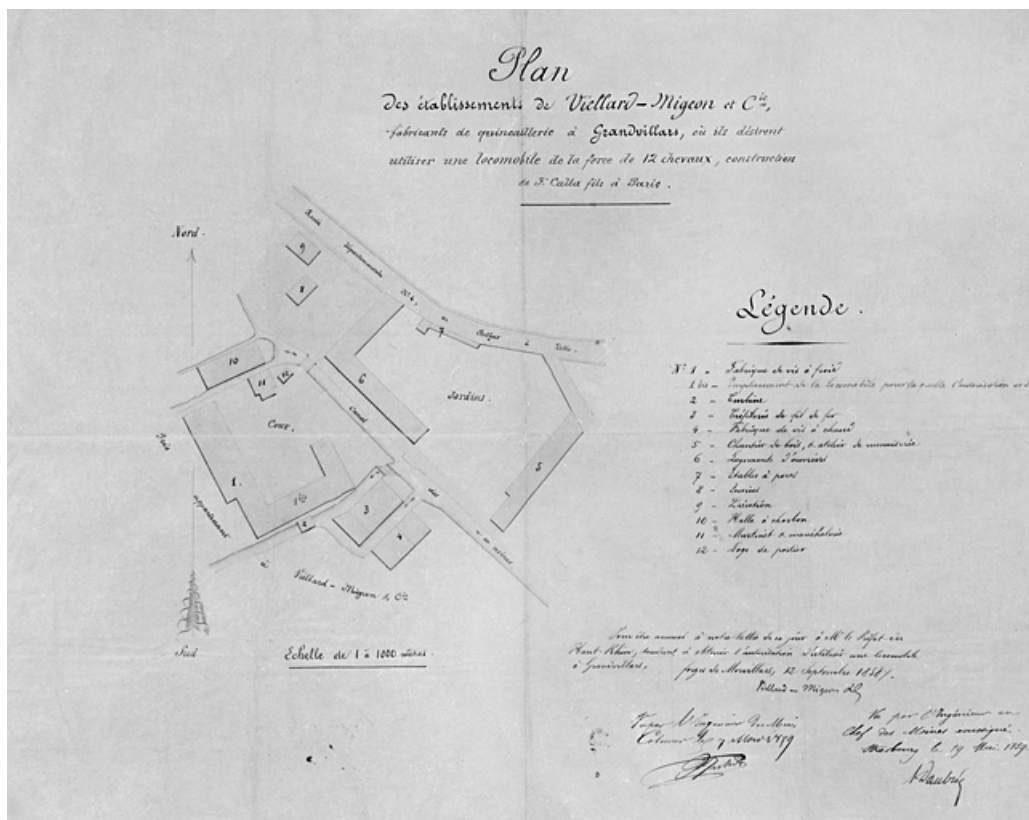 Plan
Des établissements de Viellard-Migeon et Cie,
fabricants de quincaillerie à Grandvillars, où ils désirent
utiliser une locomobile de la force de 12 chevaux, construction
de F. Calla fils à Paris.
Nord.
Route Départementale No 4, de Belfort à Delle.
9
8
7
10
11
12
6
Jardins.
Cour.
Canal des usines
5
1.
1 bis
2
3
4
Prés appartenant à Viellard-Migeon & Cie
Sud
Echelle de 1 à 1000 mètres.
Légende.
No 1 - Fabrique de vis à froid
1 bis - Emplacement de la locomobile pour laquelle l'autorisation est
2 - Turbine
3 - Tréfilerie de fil de fer
4 - Fabrique de vis à chaud
5 - Chantier de bois, & atelier de menuiserie
6 - Logements d'ouvriers
7 - Etables à porcs
8 - Ecuries
9 - Direction
10 - Halle à charbon
11 - Martinet & maréchalerie
12 - Loge de portier
Pour être annexé à notre lettre de ce jour à Mr le Préfet du
Haut-Rhin, tendant à obtenir l'autorisation d'utiliser une locomobile
à Grandvillars. forges de Morvillars, 12 Septembre 1858.
Viellard-Migeon & Cie
Vu par l'Ingénieur des Mines
Colmar le 7 Mars 1859
Vu par l'Ingénieur en
Chef des Mines soussigné.
Strasbourg le 19 Mai 1859.
A Daubrée